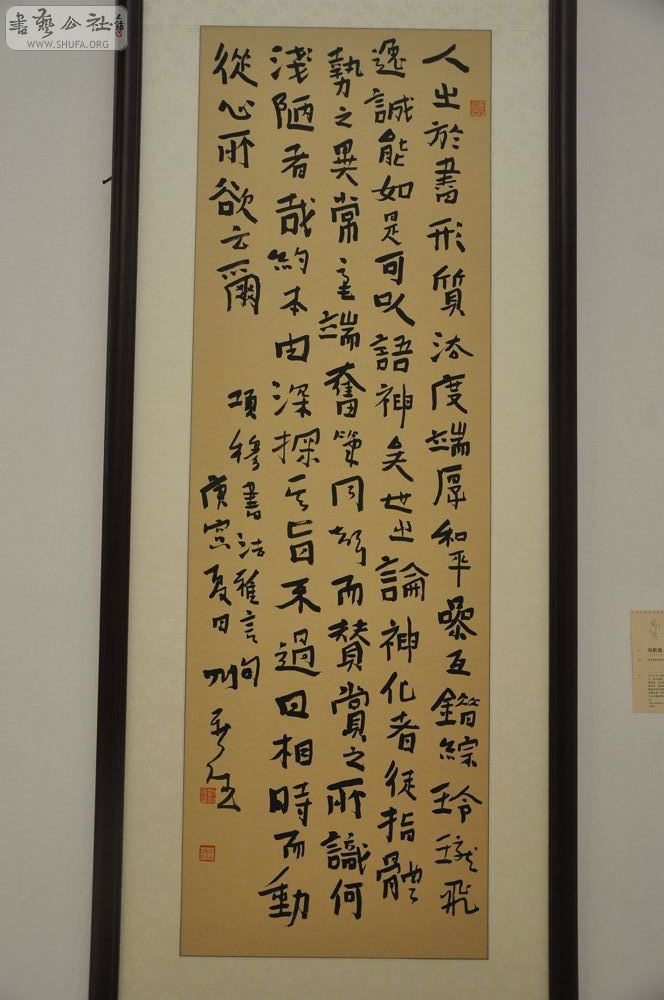 人之於書形質法度端厚和平參互錯綜玲瓏飛
逸誠能如是可以語神矣世之論神化者徒指體
勢之異常毫端奮筆同聲而贊賞之所識何
淺陋者哉約本由深探其旨不過曰相時而動
從心所欲云爾
項穆書法雅言句
庚寅夏日
書藝公社
WWW.SHUFA.ORG